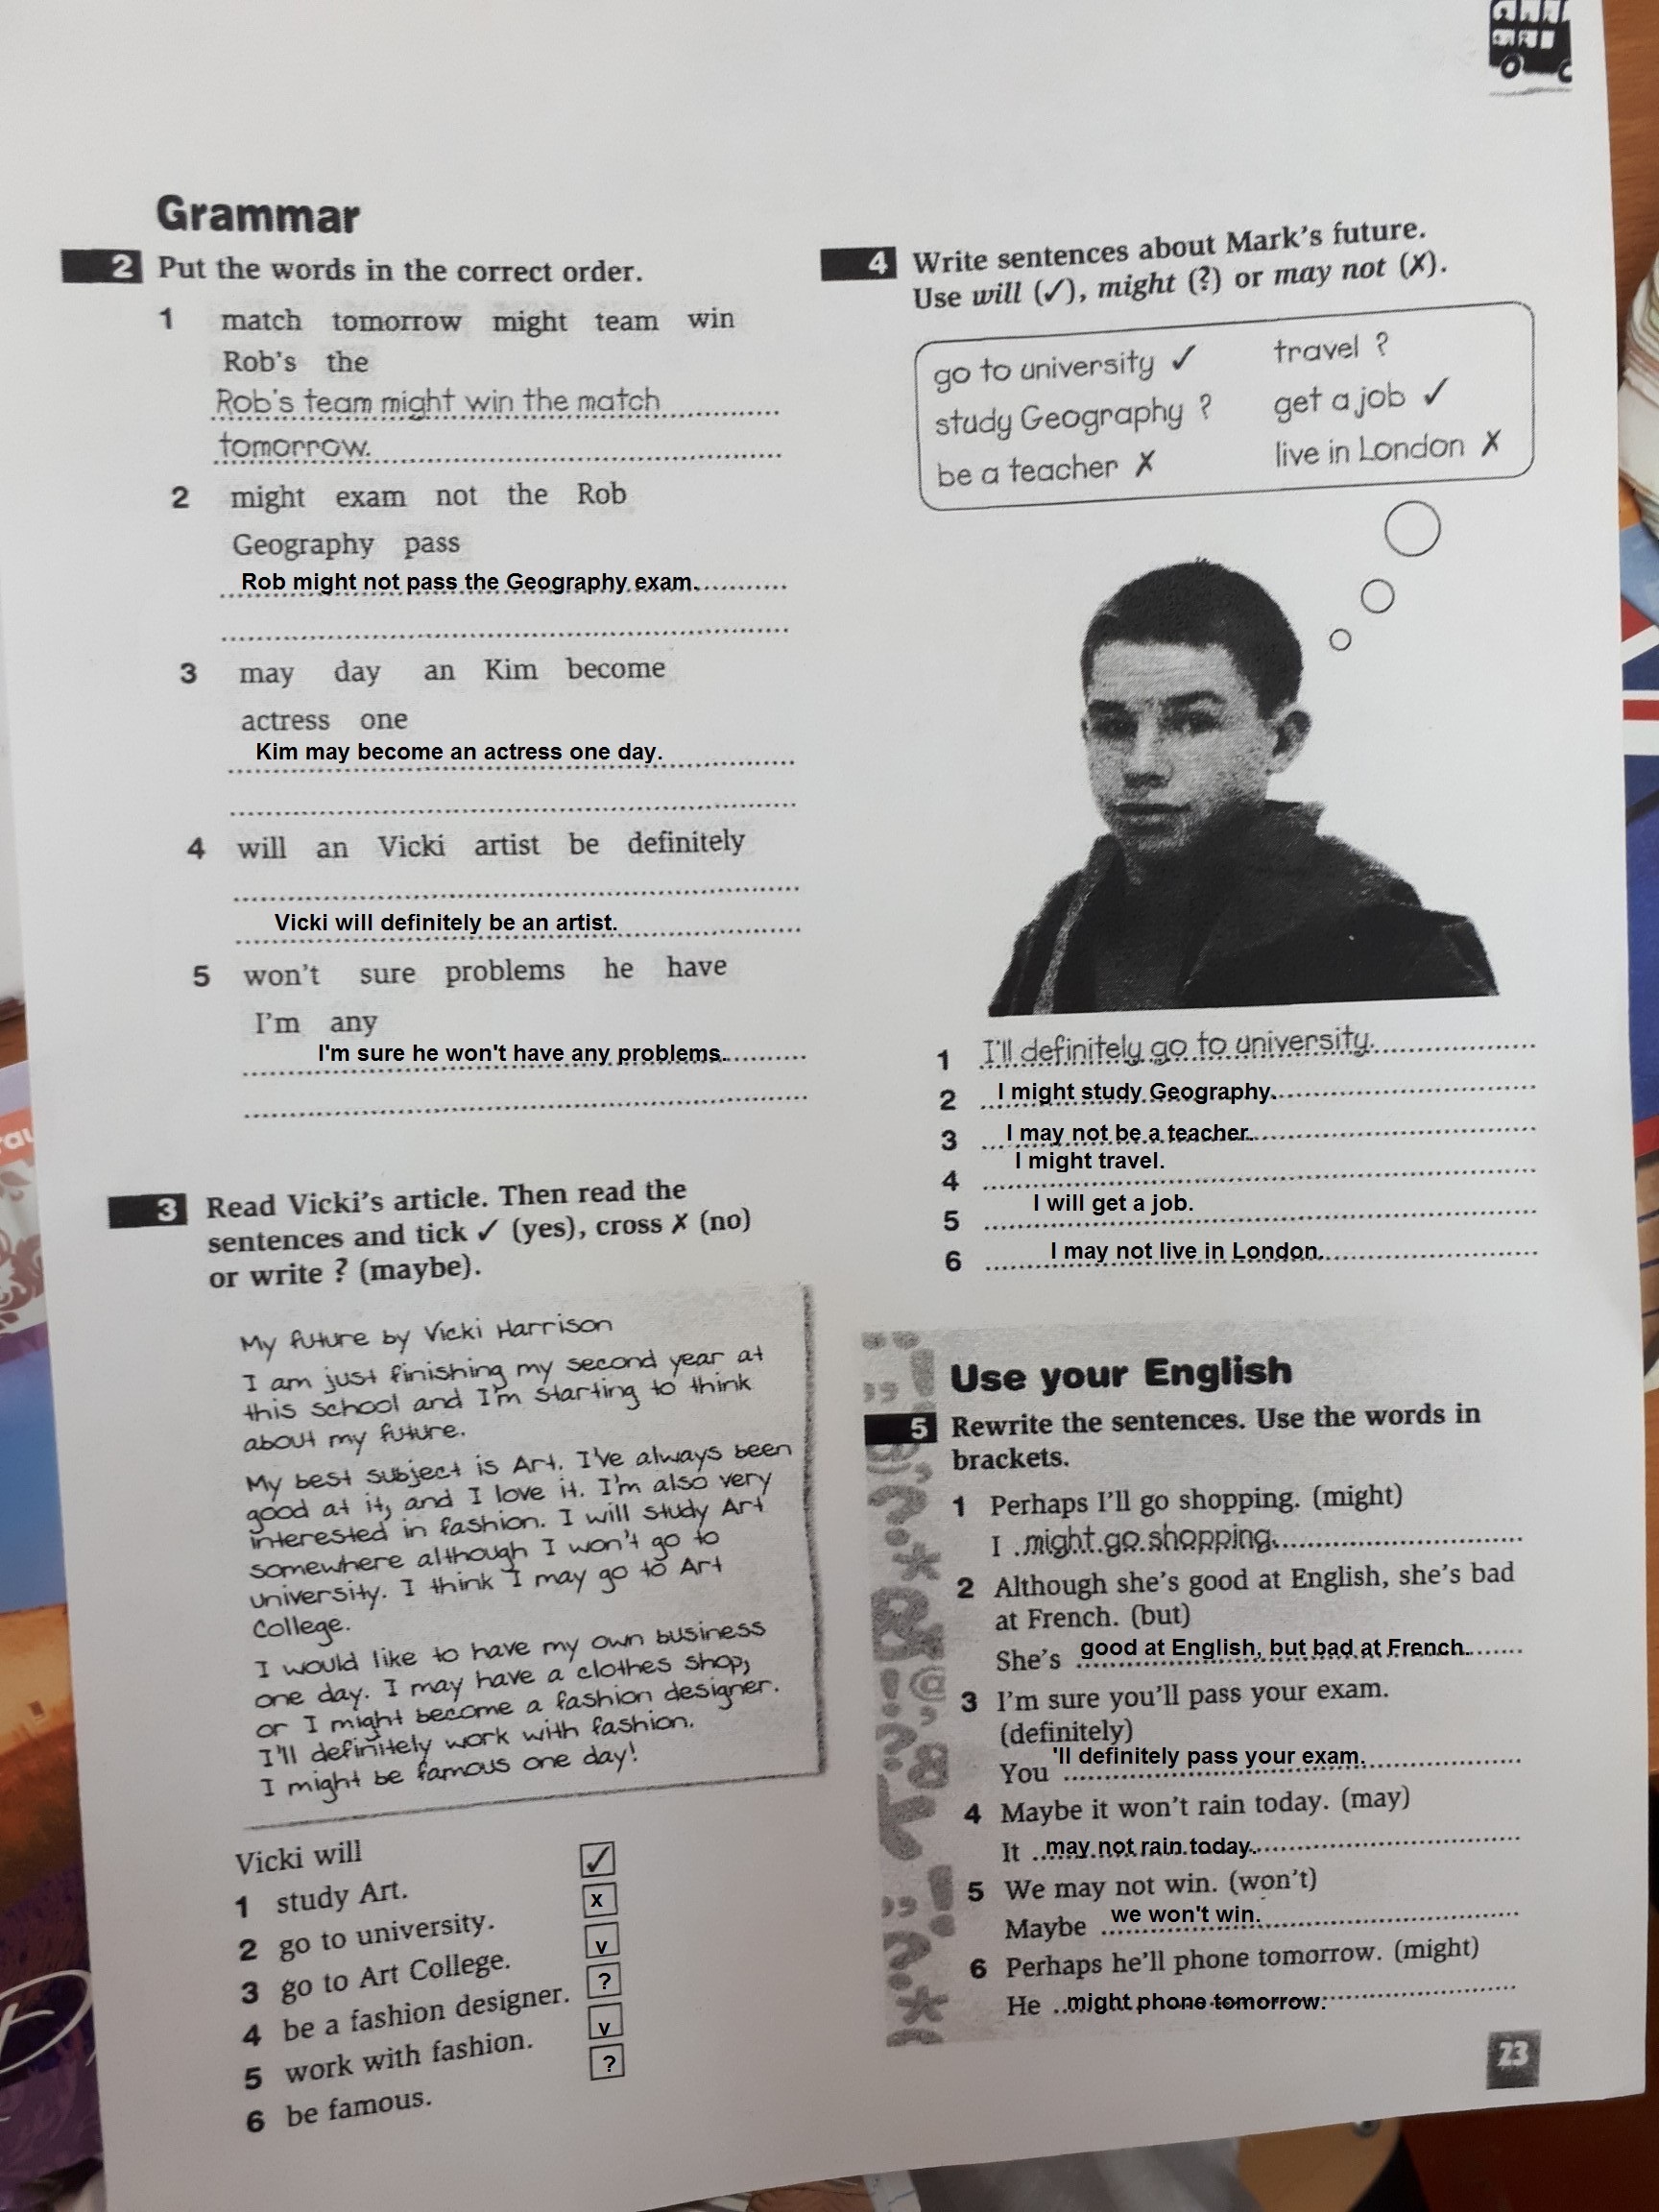 Grammar
2 Put the words in the correct order.
1 match tomorrow might team win
Rob's the
Rob's team might win the match
tomorrow.
2 might exam not the Rob
Geography pass
Rob might not pass the Geography exam.
3 may day an Kim become
actress one
Kim may become an actress one day.
4 will an Vicki artist be definitely
Vicki will definitely be an artist.
5 won't sure problems he have
I'm any
I'm sure he won't have any problems.
3 Read Vicki's article. Then read the
sentences and tick ✓ (yes), cross ✗ (no)
or write ? (maybe).
My future by Vicki Harrison
I am just finishing my second year at
this school and I'm starting to think
about my future.
My best subject is Art. I've always been
good at it, and I love it. I'm also very
interested in fashion. I will study Art
somewhere although I won't go to
university. I think I may go to Art
College.
I would like to have my own business
one day. I may have a clothes shop,
or I might become a fashion designer.
I'll definitely work with fashion.
I might be famous one day!
Vicki will
1 study Art. ✓
2 go to university. x
3 go to Art College. v
4 be a fashion designer. ?
5 work with fashion. v
6 be famous. ?
4 Write sentences about Mark's future.
Use will (✓), might (?) or may not (✗).
go to university ✓ travel ?
study Geography ? get a job ✓
be a teacher ✗ live in London ✗
1 I'll definitely go to university.
2 I might study Geography.
3 I may not be a teacher.
4 I might travel.
5 I will get a job.
6 I may not live in London.
Use your English
5 Rewrite the sentences. Use the words in
brackets.
1 Perhaps I'll go shopping. (might)
I might go shopping.
2 Although she's good at English, she's bad
at French. (but)
She's good at English, but bad at French.
3 I'm sure you'll pass your exam.
(definitely)
You 'll definitely pass your exam.
4 Maybe it won't rain today. (may)
It may not rain today.
5 We may not win. (won't)
Maybe we won't win.
6 Perhaps he'll phone tomorrow. (might)
He might phone tomorrow.
23